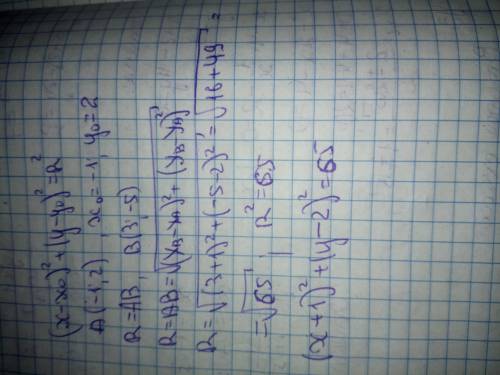 (x-x₀)²+(y-y₀)²=R²
A(-1;2), x₀=-1, y₀=2
R=AB, B(3;-5)
R=AB=√(x_B-x_A)²+(y_B-y_A)²
R=√(3+1)²+(-5-2)²=√16+49=
=√65, R²=65
(x+1)²+(y-2)²=65